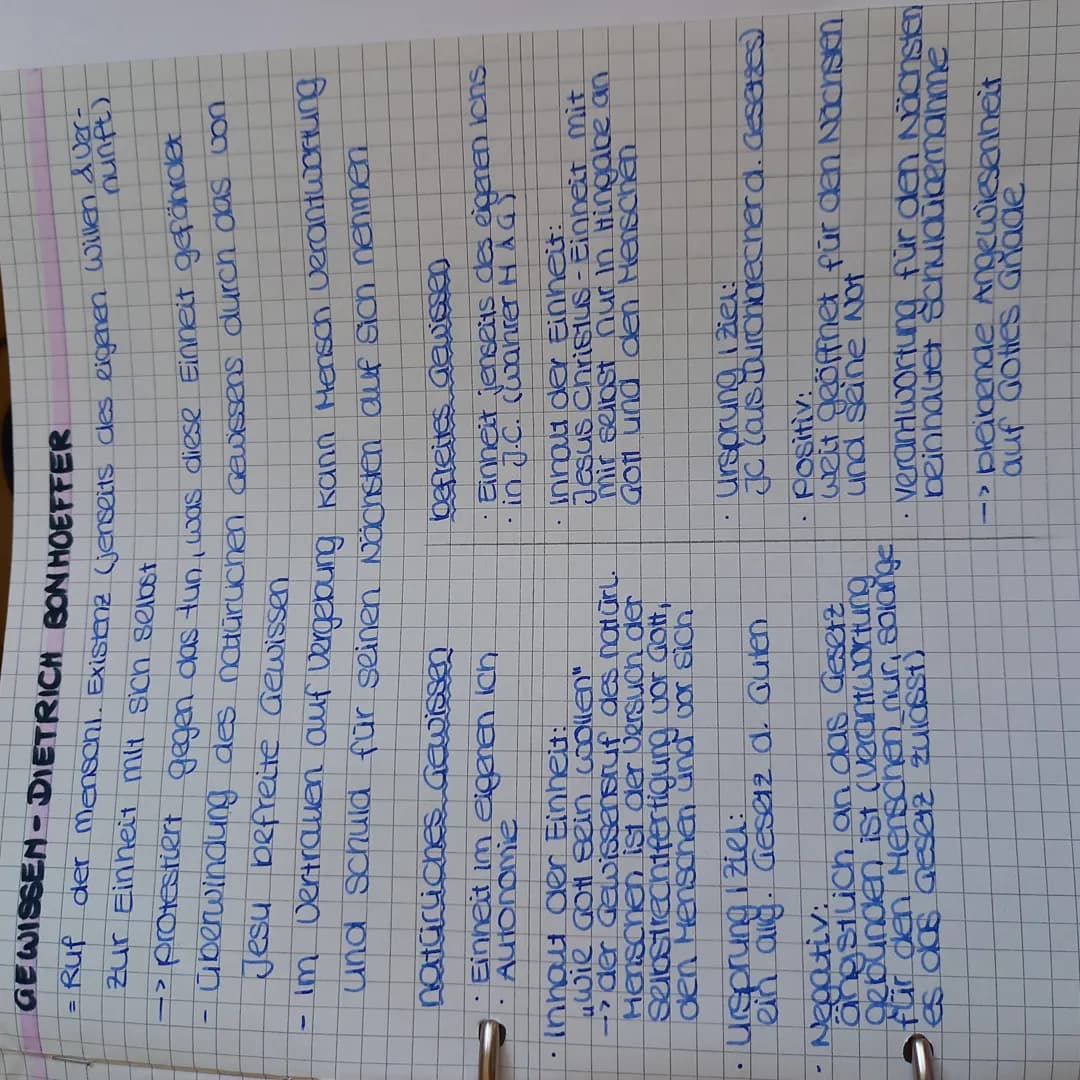 GEWISSEN - DIETRICH BONHOEFFER
= Ruf der menschl. Existenz (jenseits des eigenen Willen & Ver-
nunft)
zur Einheit mit sich selbst
-> protestiert gegen das tun, was diese Einheit gefährdet
- Überwindung des natürlichen Gewissens durch das von
Jesu befreite Gewissen
- Im Vertrauen auf Vergebung kann Mensch Verantwortung
und Schuld für seinen Nächsten auf sich nehmen
natürliches Gewissen
· Einheit im eigenen Ich
· Autonomie
· Inhalt der Einheit:
"wie Gott sein wollen"
-> der Gewissensruf des natürl.
Menschen ist der Versuch der
Selbstrechtfertigung vor Gott,
den Menschen und vor sich
· Ursprung / Ziel:
ein allg. Gesetz d. Guten
· Negativ:
ängstlich an das Gesetz
gebunden ist (Verantwortung
für den Menschen nur, solange
es das Gesetz zulässt)
befreites Gewissen
· Einheit jenseits des eigenen Ichs
· in J.C. (wahrer M & G)
· Inhalt der Einheit:
Jesus Christus - Einheit mit
mir selbst nur in Hingabe an
Gott und den Menschen
· Ursprung / Ziel:
JC (als Durchbrecher d. Gesetzes)
· Positiv:
weit geöffnet für den Nächsten
und seine Not
· Verantwortung für den Nächsten
beinhaltet Schuldübernahme
-> bleibende Angewiesenheit
auf Gottes Gnade